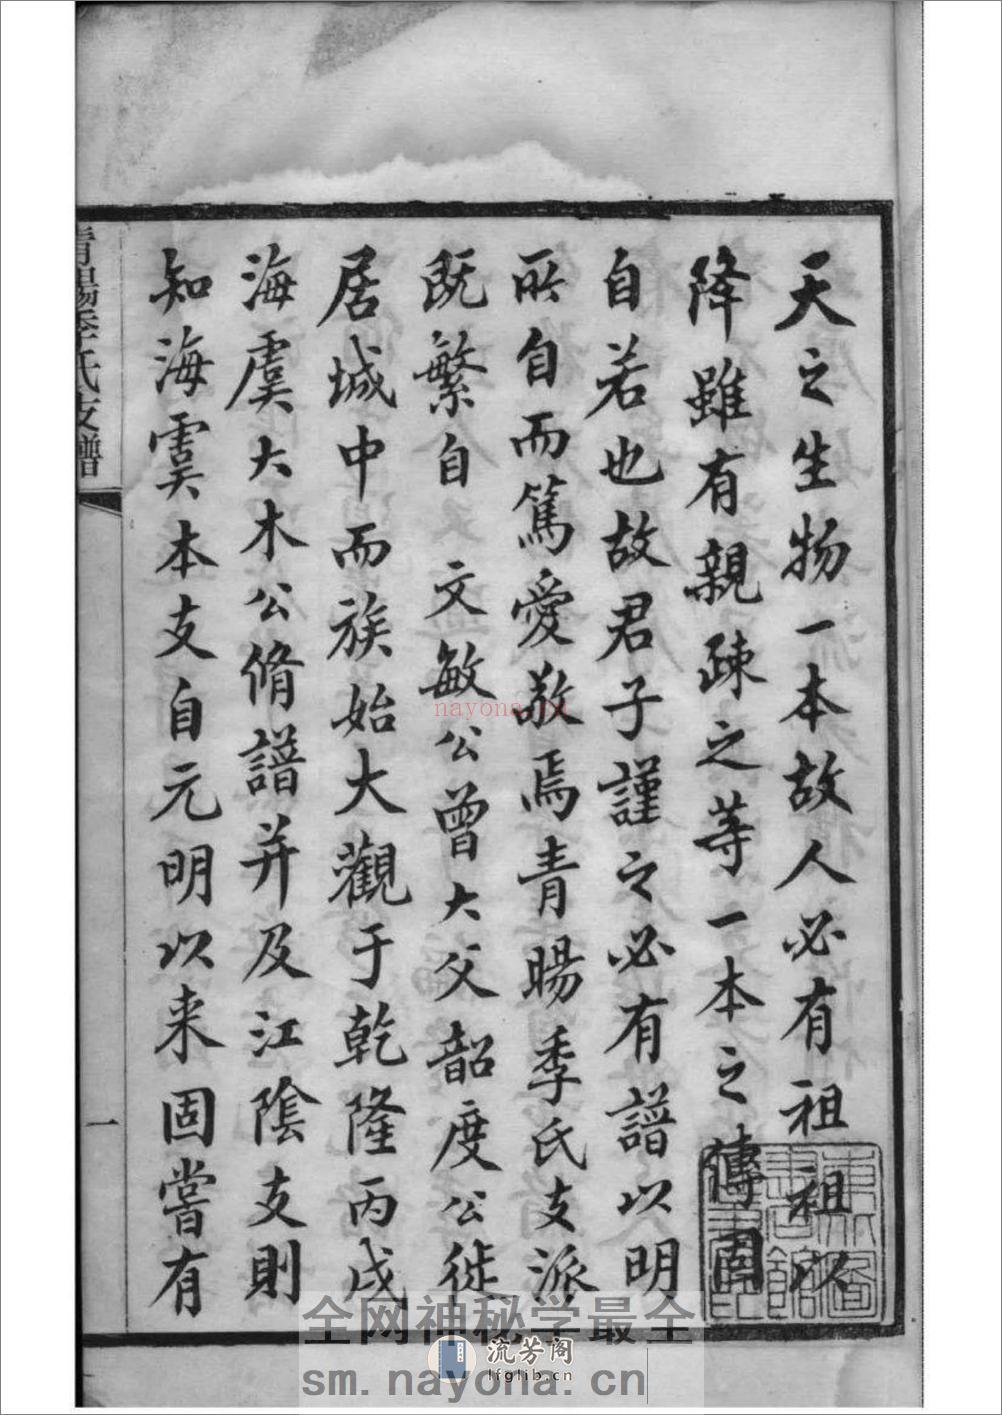 天之生物一本故人必有祖祖以
降雖有親疎之等一本之傳固
自若也故君子謹之必有譜以明
所自而篤愛敬焉青暘季氏支派
既繁自 文敏公曾大父韶度公徙
居城中而族始大觀于乾隆丙戌
海虞大木公脩譜并及江陰支則
知海虞本支自元明以来固嘗有
青暘季氏支譜
一
nayona.cn
全网神秘学最全
流芳阁
lfglib.cn
sm.nayona.cn